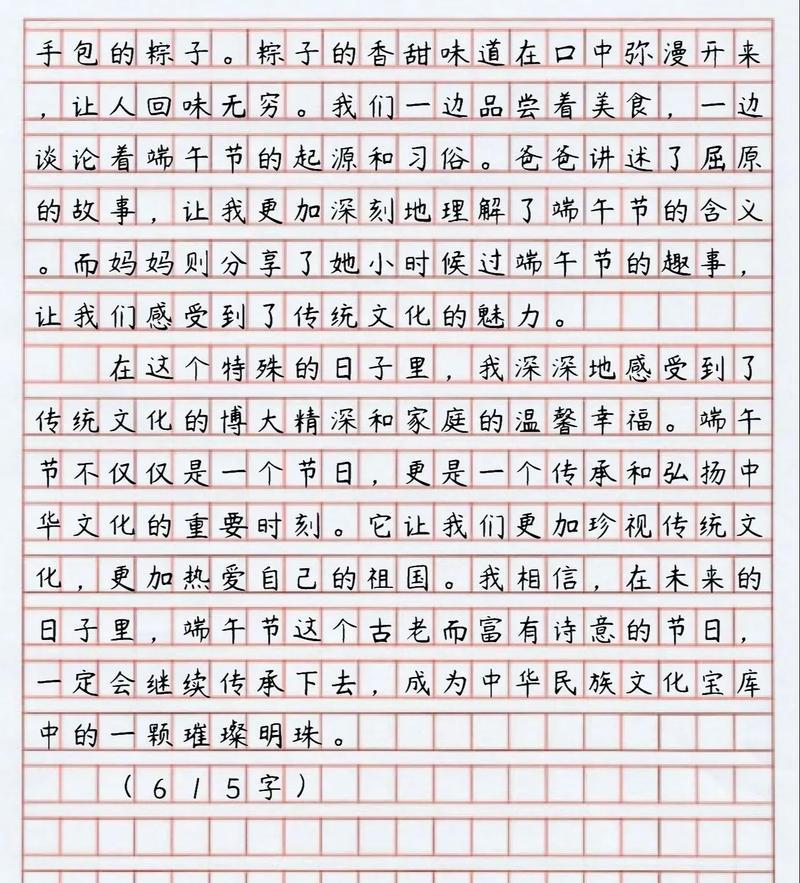 手包的粽子。粽子的香甜味道在口中弥漫开来
，让人回味无穷。我们一边品尝着美食，一边
谈论着端午节的起源和习俗。爸爸讲述了屈原
的故事，让我更加深刻地理解了端午节的含义
。而妈妈则分享了她小时候过端午节的趣事，
让我们感受到了传统文化的魅力。
在这个特殊的日子里，我深深地感受到了
传统文化的博大精深和家庭的温馨幸福。端午
节不仅仅是一个节日，更是一个传承和弘扬中
华文化的重要时刻。它让我们更加珍视传统文
化，更加热爱自己的祖国。我相信，在未来的
日子里，端午节这个古老而富有诗意的节日，
一定会继续传承下去，成为中华民族文化宝库
中的一颗璀璨明珠。
（615字）